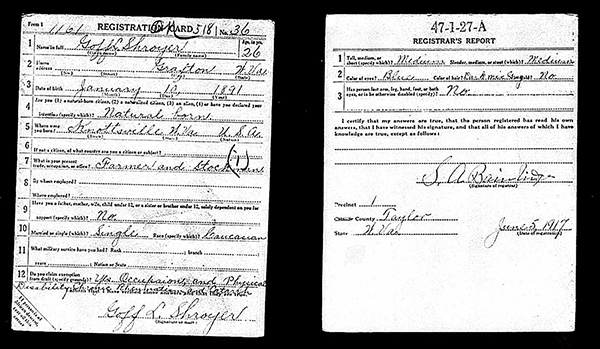 Form 1 1161 REGISTRATION CARD 518 No. 36
1 Name in full Goff L. Shroyer Age, in yrs. 26
(Given name) (Family name)
2 Home address Grafton W. Va.
(No.) (Street) (City) (State)
3 Date of birth January 19 1891
(Month) (Day) (Year)
4 Are you (1) a natural-born citizen, (2) a naturalized citizen, (3) an alien, (4) or have you declared your
intention (specify which)? Natural born
5 Where were you born? Knottsville W. Va. U.S.A.
(Town) (State) (Nation)
6 If not a citizen, of what country are you a citizen or subject?
7 What is your present trade, occupation, or office? Farmer and Stockman (1)
8 By whom employed?
Where employed?
9 Have you a father, mother, wife, child under 12, or a sister or brother under 12, solely dependent on you for
support (specify which)? No
10 Married or single (which)? Single Race (specify which)? Caucasian
11 What military service have you had? Rank ; branch
years ; Nation or State
12 Do you claim exemption from draft (specify grounds)? Yes. Occupation and Physical
Disability
Goff L. Shroyer
(Signature or mark)
47-1-27-A
REGISTRAR'S REPORT
1 Tall, medium, or short (specify which)? Medium Slender, medium, or stout (which)? Medium
2 Color of eyes? Blue Color of hair? Bald? No
3 Has person lost arm, leg, hand, foot, or both
eyes, or is he otherwise disabled (specify)? No
I certify that my answers are true, that the person registered has read his own
answers, that I have witnessed his signature, and that all of his answers of which I have
knowledge are true, except as follows:
S. A.
(Signature of registrar)
Precinct 1
County Taylor
State W. Va. June 5, 1917
(Date of registration)